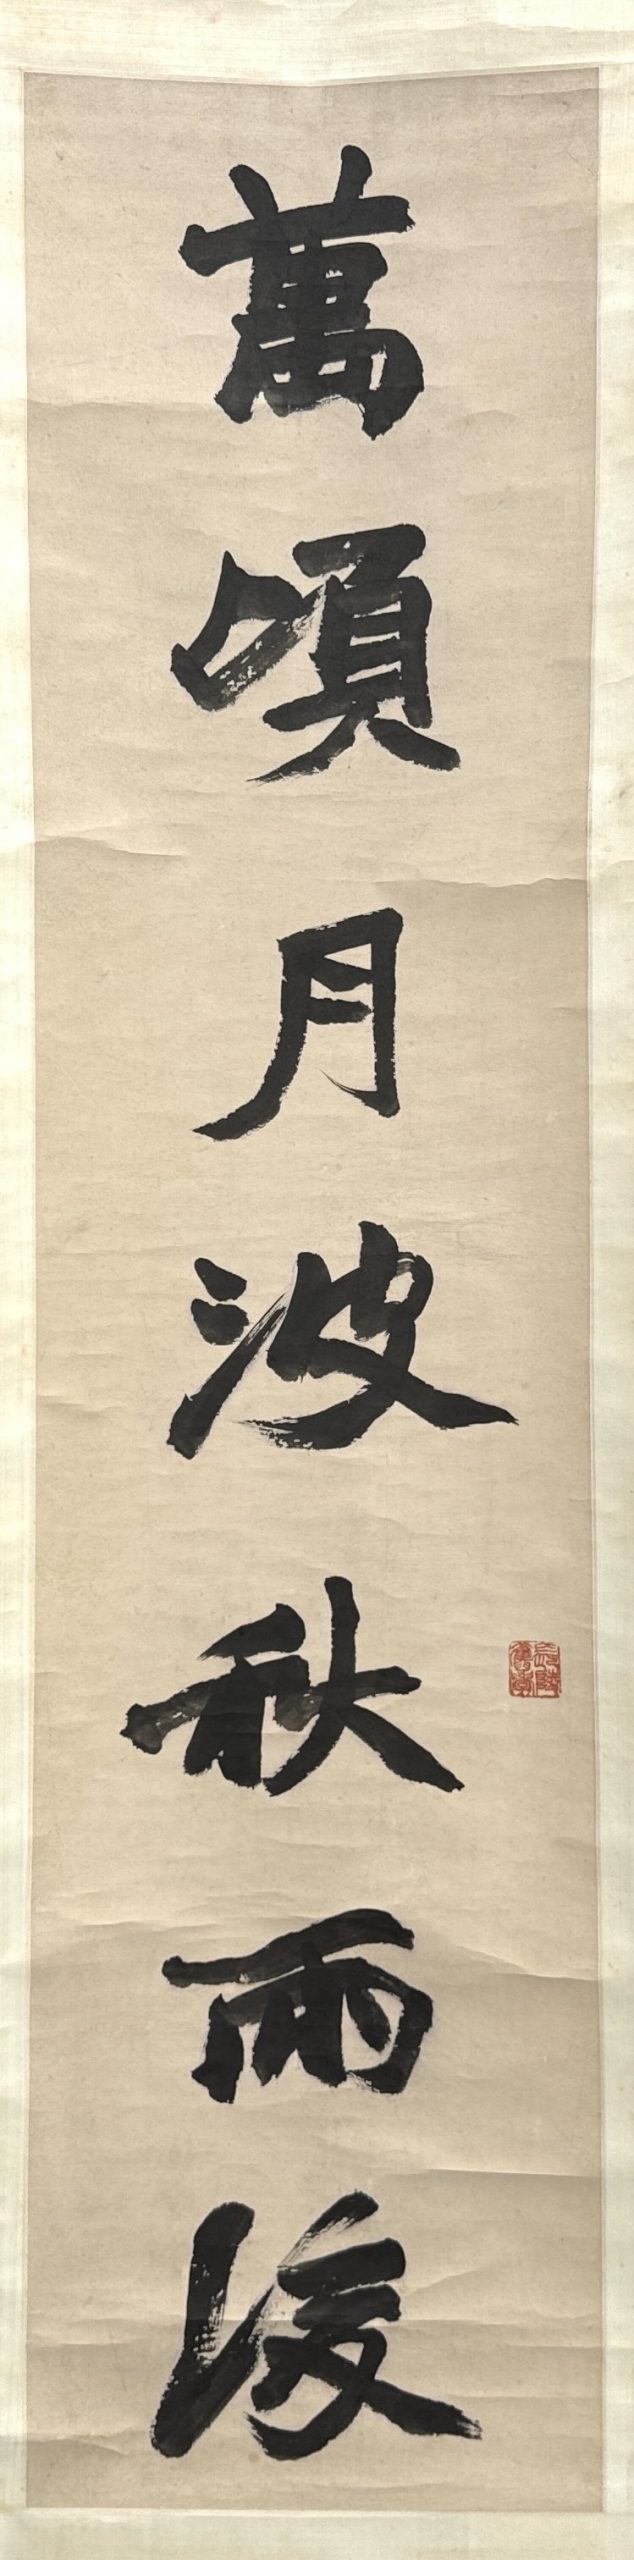 萬頃月波秋雨後